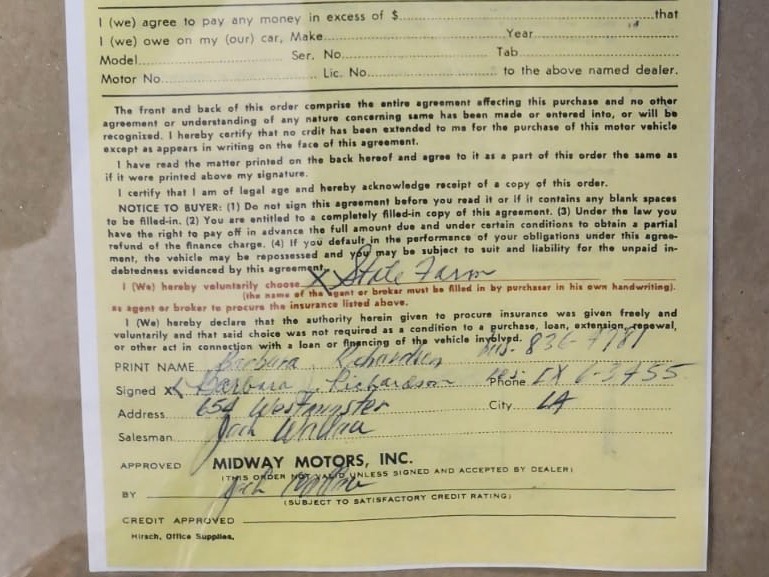 I (we) agree to pay any money in excess of $ that
I (we) owe on my (our) car, Make Year
Model Ser. No. Tab
Motor No. Lic. No. to the above named dealer.
The front and back of this order comprise the entire agreement affecting this purchase and no other
agreement or understanding of any nature concerning same has been made or entered into, or will be
recognized. I hereby certify that no crdit has been extended to me for the purchase of this motor vehicle
except as appears in writing on the face of this agreement.
I have read the matter printed on the back hereof and agree to it as a part of this order the same as
if it were printed above my signature.
I certify that I am of legal age and hereby acknowledge receipt of a copy of this order.
NOTICE TO BUYER: (1) Do not sign this agreement before you read it or if it contains any blank spaces
to be filled-in. (2) You are entitled to a completely filled-in copy of this agreement. (3) Under the law you
have the right to pay off in advance the full amount due and under certain conditions to obtain a partial
refund of the finance charge. (4) If you default in the performance of your obligations under this agree-
ment, the vehicle may be repossessed and you may be subject to suit and liability for the unpaid in-
debtedness evidenced by this agreement.
I (We) hereby voluntarily choose X State Farm
(the name of the agent or broker must be filled in by purchaser in his own handwriting).
as agent or broker to procure the insurance listed above.
I (We) hereby declare that the authority herein given to procure insurance was given freely and
voluntarily and that said choice was not required as a condition to a purchase, loan, extension, renewal,
or other act in connection with a loan or financing of the vehicle involved.
PRINT NAME Barbara Richardson Bus. 836-7181
Signed X Barbara J. Richardson Res. Phone EX 6-3455
Address 654 Westminster City LA
Salesman Jack
APPROVED MIDWAY MOTORS, INC.
(THIS ORDER NOT VALID UNLESS SIGNED AND ACCEPTED BY DEALER)
BY Jack
(SUBJECT TO SATISFACTORY CREDIT RATING)
CREDIT APPROVED
Hirsch, Office Supplies,